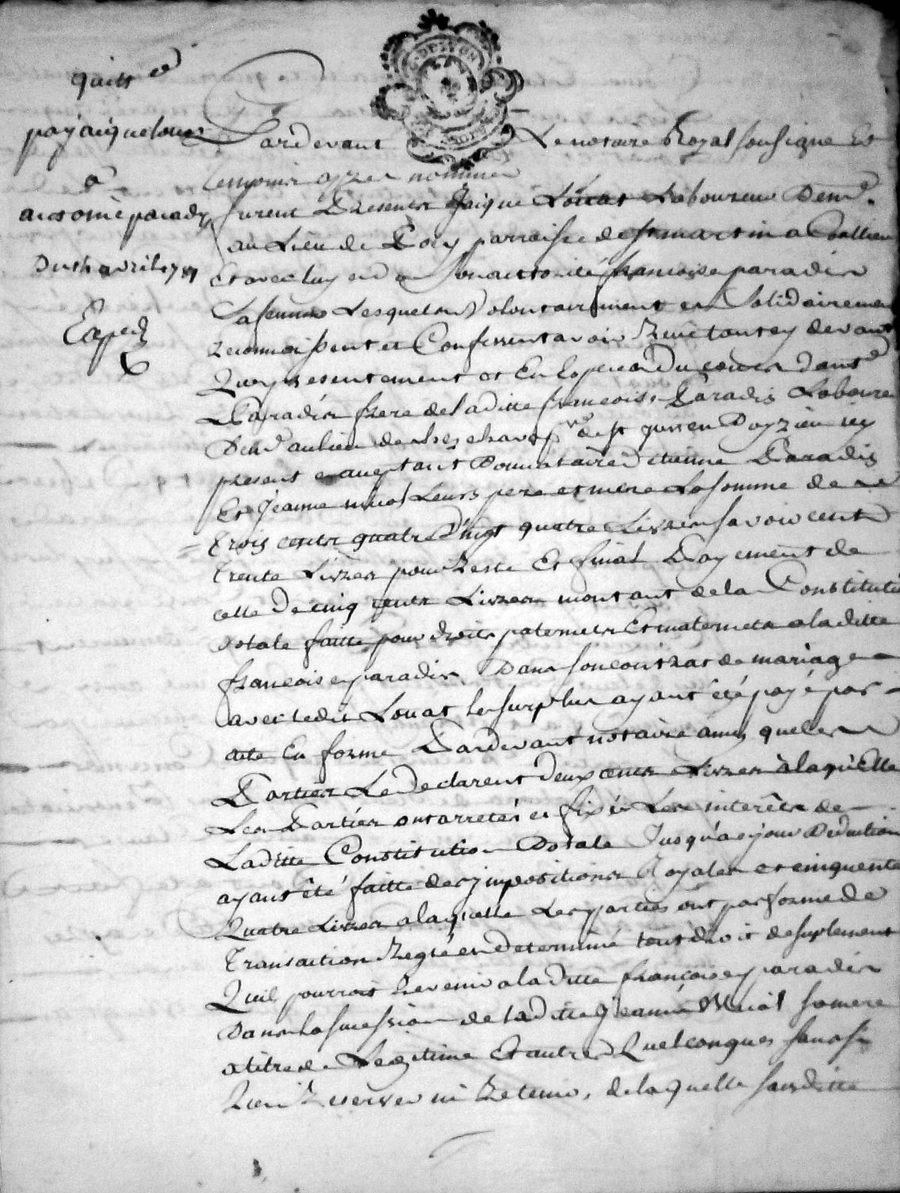 quitt ce
par jaique louat
a
antoine paradis
Du 5 avril 1781
Expedi
Pardevant Le notaire Royal sousigné Et
temoins apres nommes
furent Presents Jaique Louat Laboureur Dem.t
au Lieu de parroisse de st martin a
Et avec luy et de Son autorité francoise paradis
Sa femme Lesquels Volontairement et Solidairement
Reconnoissent et Confessent avoir Reçu tant cy devant
Que presentement et En Especes Du cours d'ant.e
Paradis frere de laditte francoise Paradis Laboureur
Dem.t au lieu de st icy
present et aceptant Donnataire d'etienne Paradis
Et Jeanne Leurs pere et mere La somme de
trois cents quatre Vingt quatre Livres savoir cent
trente Livres pour Reste Et final Payement de
celle De cinq cents Livres montant de la Constitution
Dotale faitte pour droits paternels Et maternels a laditte
francoise paradis Dans son contrat de mariage
avec ledit Louat le surplus ayant été payé par
acte En forme Pardevant notaire ainsi que les
Parties Le declarent deux cents Livres à laquelle
Les Parties ont arretés et fixés Les interêts de
Laditte Constitution Dotale Jusqu'a ce jour Deduction
ayant été faitte des impositions Royales et cinquante
Quatre Livres a laquelle Les parties ont par forme de
transaction Reglé et determiné tout droit de suplement
Quil pourroit Revenir a laditte françoise paradis
Dans la sucession de laditte Jeanne sa mere
a titre de Legitime Et autres Quelconques sans se
Rien Reserver ni Retenir, de laquelle susditte